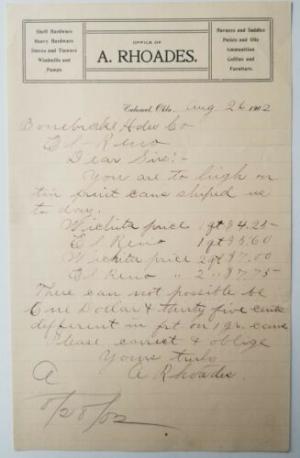 Shelf Hardware
Heavy Hardware
Stoves and Tinware
Windmills and
Pumps
OFFICE OF
A. RHOADES.
Harness and Saddles
Paints and Oils
Ammunition
Coffins and
Furniture.
Calumet, Okla., Aug 26 1902
Bonebrake Hdw Co
El-Reno
Dear Sirs:-
You are to high on
tin fruit cans shiped us
to day.
Wichita price 1 qt $4.25-
El Reno 1 qt $5.60
Wichita price 2 qt $7.00
El Reno " 2 " $7.75-
There can not possible be
One Dollar & thirty five cents
different in frt on 1 gr. cans
Please correct & oblige
Yours truly
A A Rhoades.
8/28/02